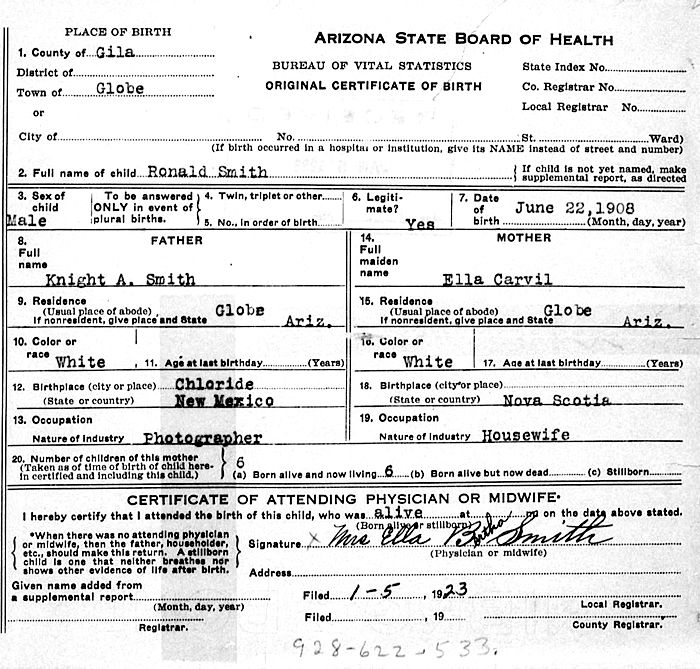 PLACE OF BIRTH
ARIZONA STATE BOARD OF HEALTH
1. County of Gila
BUREAU OF VITAL STATISTICS
State Index No.
District of
ORIGINAL CERTIFICATE OF BIRTH
Co. Registrar No.
Town of Globe
Local Registrar No.
or
City of No. St. Ward)
(If birth occurred in a hospital or institution, give its NAME instead of street and number)
2. Full name of child Ronald Smith
If child is not yet named, make
supplemental report, as directed
3. Sex of
child
Male
To be answered
ONLY in event of
plural births.
4. Twin, triplet or other
5. No., in order of birth
6. Legiti-
mate?
Yes
7. Date
of
birth June 22,1908
(Month, day, year)
8. FATHER
Full
name
Knight A. Smith
14. MOTHER
Full
maiden
name
Ella Carvil
9. Residence
(Usual place of abode) Globe
If nonresident, give place and State Ariz.
15. Residence
(Usual place of abode) Globe
If nonresident, give place and State Ariz.
10. Color or
race White
11. Age at last birthday (Years)
16. Color or
race White
17. Age at last birthday (Years)
12. Birthplace (city or place) Chloride
(State or country) New Mexico
18. Birthplace (city or place)
(State or country) Nova Scotia
13. Occupation
Nature of Industry Photographer
19. Occupation
Nature of Industry Housewife
20. Number of children of this mother
(Taken as of time of birth of child here-
in certified and including this child.)
6
(a) Born alive and now living 6 (b) Born alive but now dead (c) Stillborn
CERTIFICATE OF ATTENDING PHYSICIAN OR MIDWIFE*
I hereby certify that I attended the birth of this child, who was alive at m on the date above stated.
(Born alive or stillborn)
*When there was no attending physician
or midwife, then the father, householder,
etc., should make this return. A stillborn
child is one that neither breathes nor
shows other evidence of life after birth.
Signature X Mrs Ella Bertha Smith
(Physician or midwife)
Address
Given name added from
a supplemental report
(Month, day, year)
Registrar.
Filed 1-5, 1923
Local Registrar.
Filed , 19
County Registrar.
928-622-533.